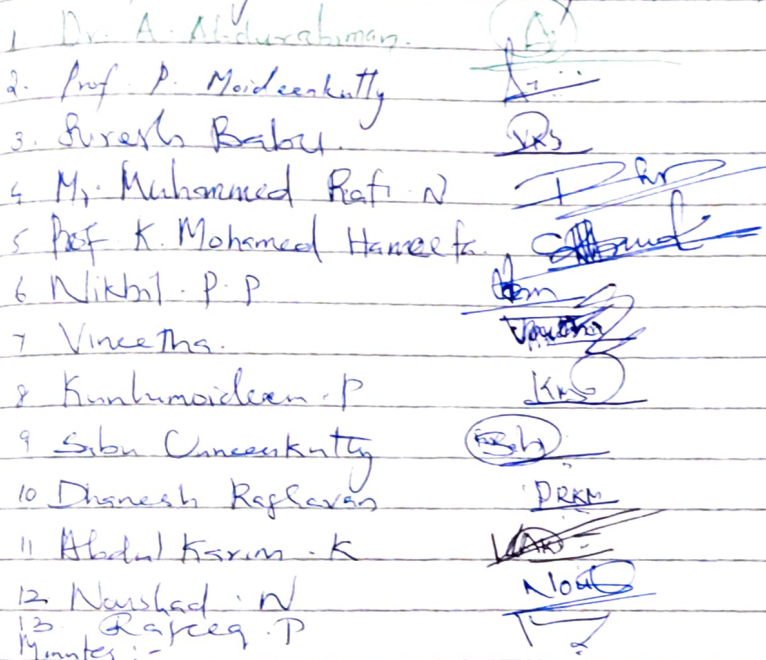 1 Dr. A. Abdurahiman.
2. Prof. P. Moideenkutty
3. Suresh Babu. VRS
4 Mr. Muhammed Rafi. N
5 Prof K. Mohamed Haneefa.
6 Nikhil. P. P
7 Vineetha.
8 Kunhumoideen. P
9 Sibu Unneenkutty
10 Dhanesh Raghavan DRKM
11 Abdul Karim. K
12 Naushad. N
13. Rafeeq. P
Minutes :-